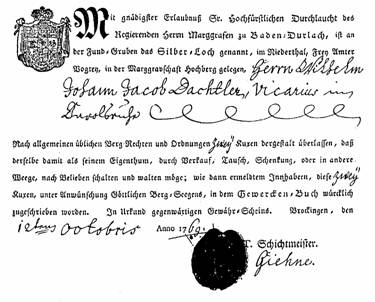 Mit gnädigster Erlaubnuß Sr. Hochfürstlichen Durchlaucht des
Regierenden Herrn Marggrafen zu Baden-Durlach, ist an
der Fund-Gruben das Silber-Loch genannt, im Niederthal, Frey Amter
Vogtey, in der Marggravschaft Hochberg gelegen, Herrn
Johann Jacob Dachtler, Vicarius in
Nach allgemeinen üblichen Berg Rechten und Ordnungen zwey Kuxen dergestalt überlassen, daß
derselbe damit als seinem Eigenthum, durch Verkauf, Tausch, Schenkung, oder in andere
Weege, nach Belieben schalten und walten möge; wie dann ermeldtem Innhabern, diese zwey
Kuxen, unter Anwünschung Göttlichen Berg-Seegens, in dem Gewercken-Buch würcklich
zugeschrieben worden. In Urkund gegenwärtigen Gewähr-Scheins. Brockingen, den
12tens Octobris Anno 1769.
T. Schichtmeister.
Giehne.